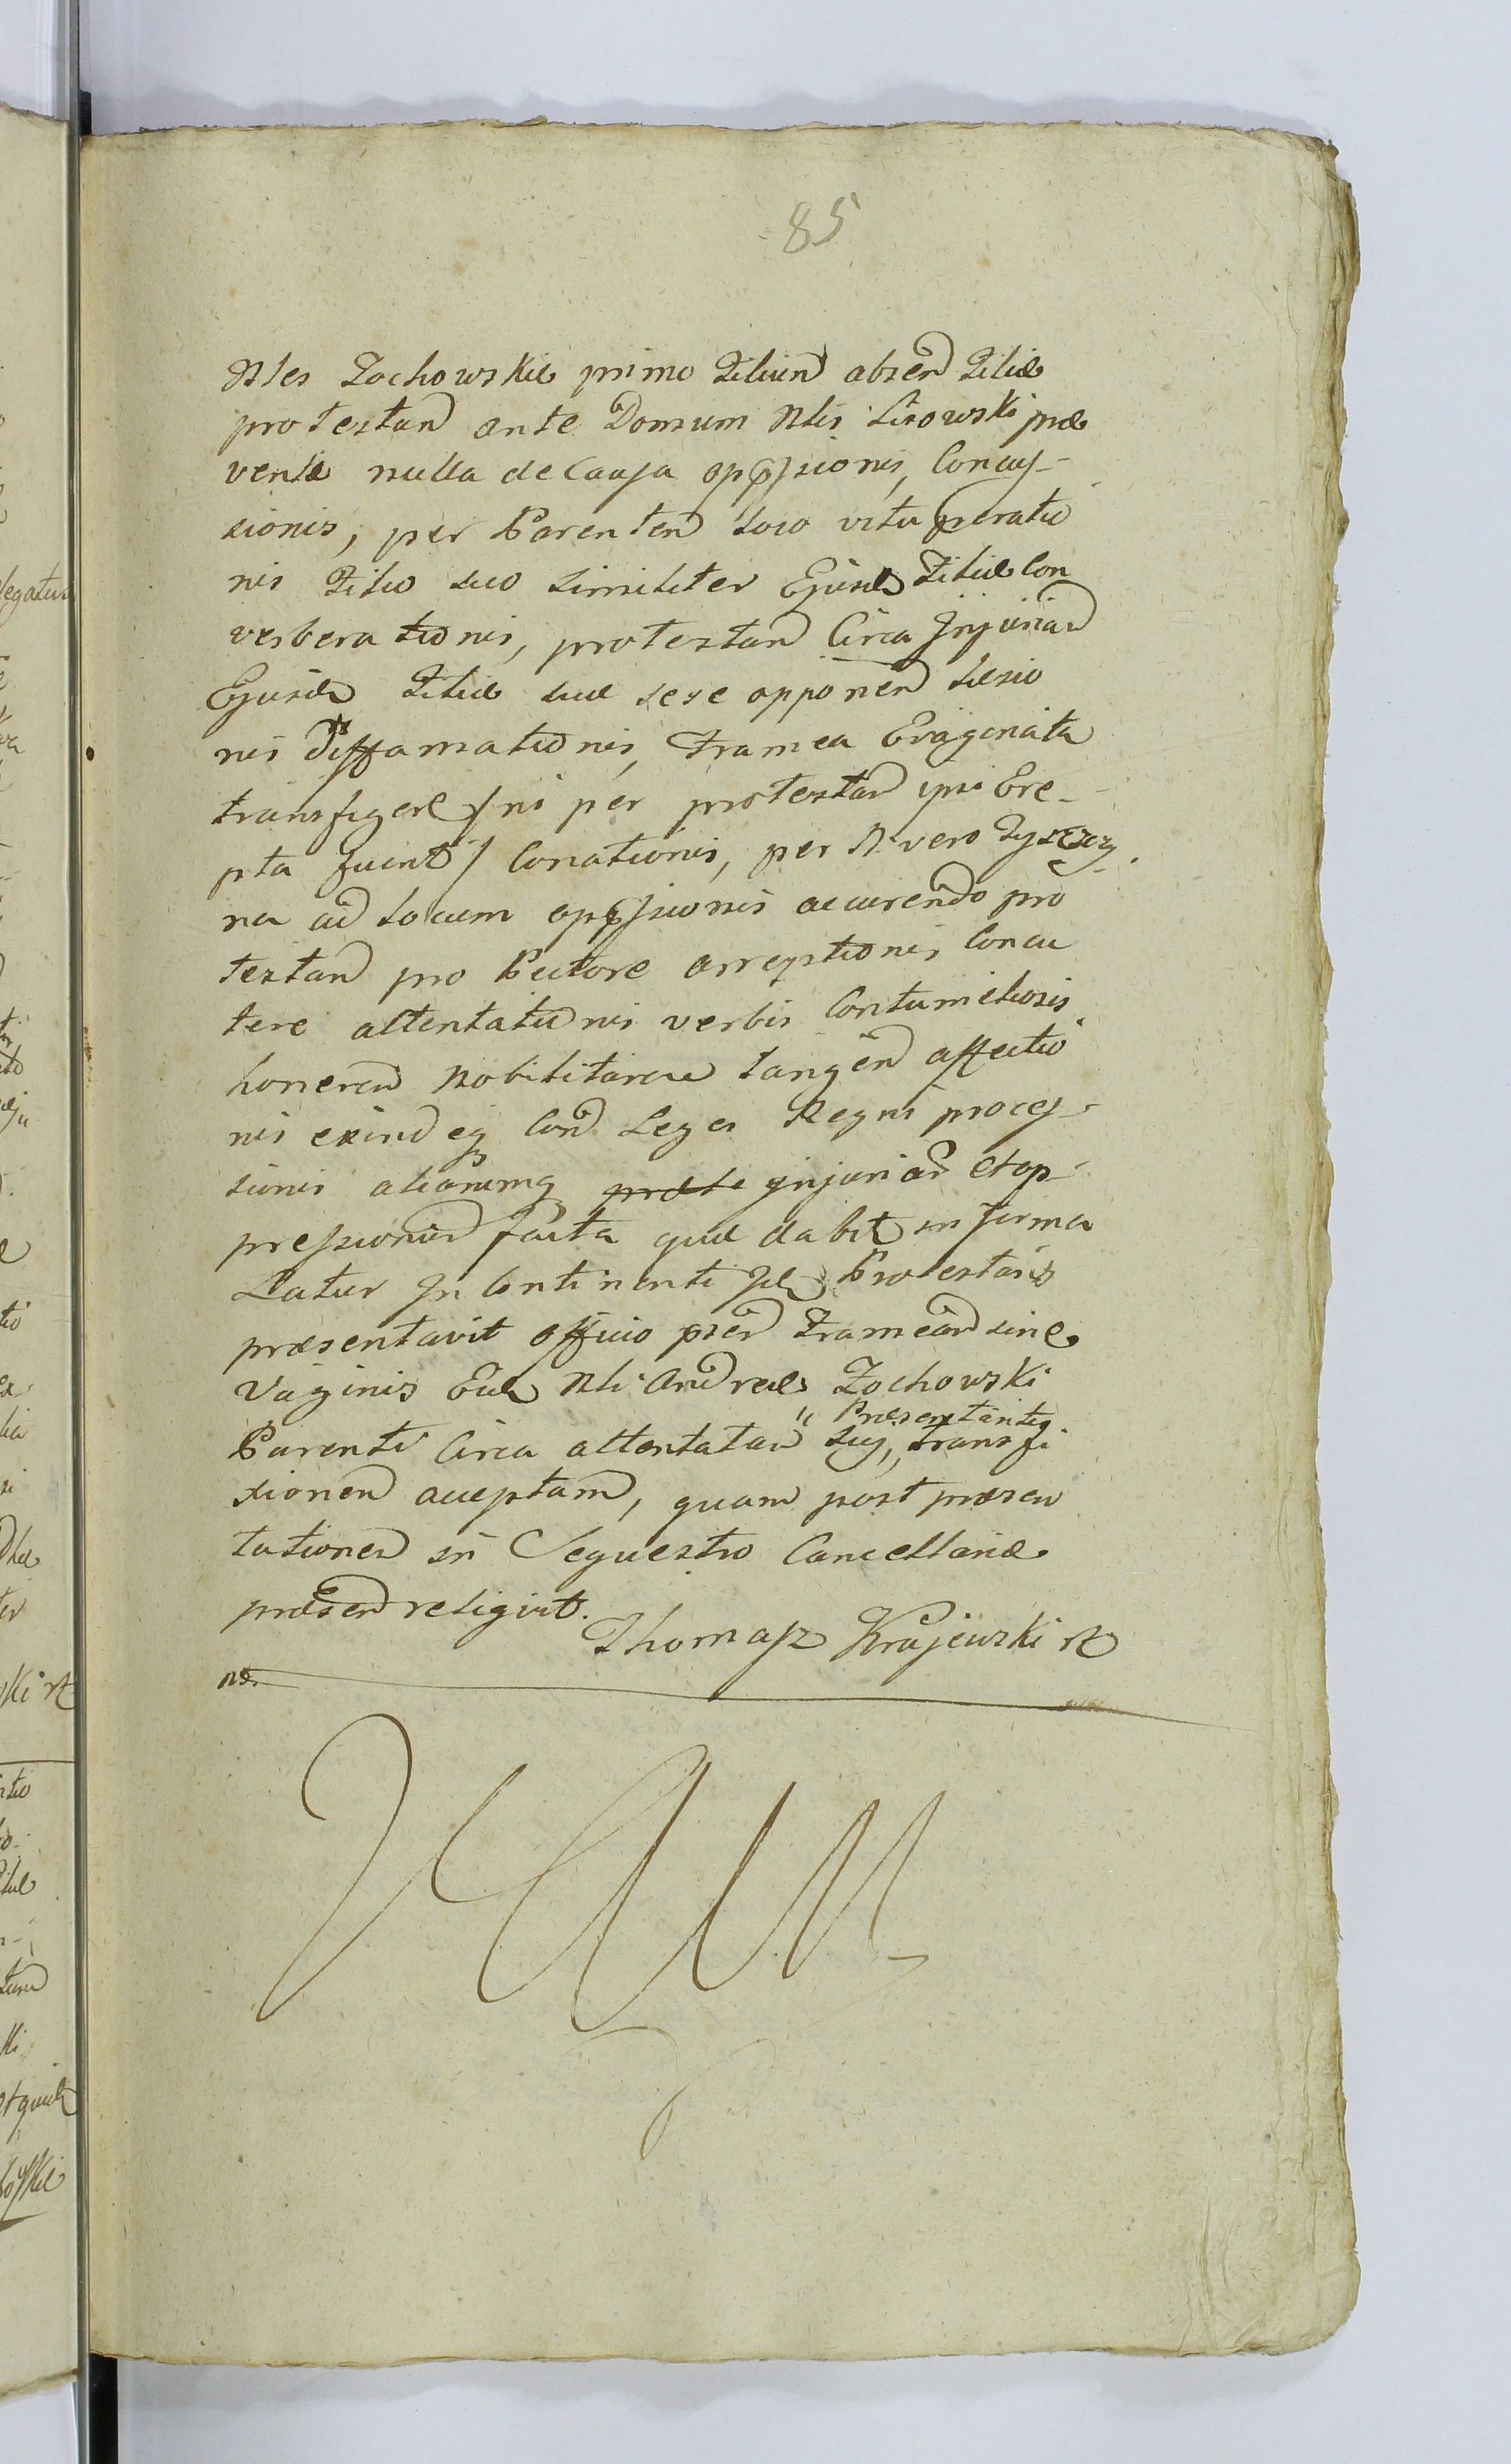 85
Nles Zochowskie primo Filium absen Filiæ
protestan ante Domum Nlis Lisowski præ
ventæ nulla de Causa oppssionis, Concus-
sionis, per Parentem loco vituperatio
nis Filio suo similiter Ejusd Filiæ Con
verberationis, protestan Circa Injuriam
Ejusdem Filiæ suæ sese opponen Læsio
nis diffamationis, Framea Evaginata
transfigere / ni per protestan ipsi Ere-
pta fuerit / Conationis, per N vero
na ad Locum oppssionis accurendo pro
testan pro Pectore arreptionis Concu
tere attentationis verbis Contumeliosis
honorem Nobilitarem tangen affectio
nis exindeq Con Leges Regni proces-
sionis aliarumq Injuriar et op-
pressionum facta quæ dabit in forma
Latur In Continenti Id Protestans
præsentavit officio psen Frameam sine
Vaginis Eid Nli Andreæ Zochowski
Præsentantis
Parenti Circa attentatam sui, transfi
xionem acceptam, quam post præsen
tationem in Sequestro Cancellariæ
præsen religivit.
Thomasz Krajewski